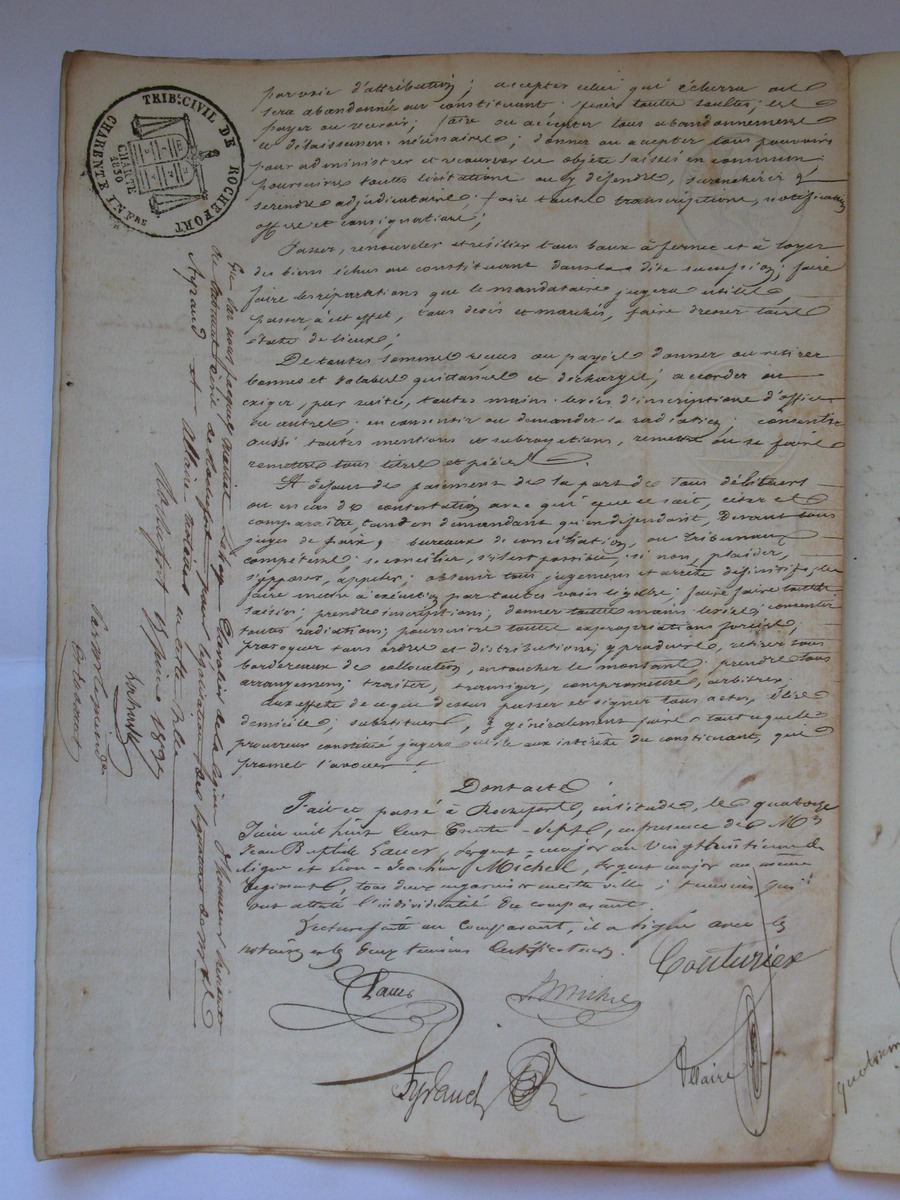 TRIB.L CIVIL DE ROCHEFORT
CHARENTE INF.RE
CHARTE
1830
par voie d'attribution ; accepter celui qui écherra ou
sera abandonné au constituant ; faire toutes soultes, les
payer ou recevoir ; faire ou accepter tous abandonnements
et délaissements nécessaires ; donner ou accepter tous pouvoirs
pour administrer et recouvrer les objets laissés en commun ;
poursuivre toutes licitations ou y défendre, surenchérir &
se rendre adjudicataire ; faire toutes transcriptions, notifications
offres et consignations ;
Passer, renouveler et résilier tous baux à ferme et à loyer
des biens échus au constituant dans la dite succession ; faire
faire les réparations que le mandataire jugera utiles,
passer, à cet effet, tous devis et marchés, faire dresser tous
états de lieux ;
De toutes sommes reçues ou payées donner ou retirer
bonnes et valables quittances et décharges ; accorder ou
exiger, par suite, toutes mains-levées d'inscriptions d'office
ou autres ; en consentir ou demander la radiation ; consentir
aussi toutes mentions et subrogations, remettre ou se faire
remettre tous titres et pièces.
A défaut de paiement de la part de tous débiteurs
ou en cas de contestation avec qui que ce soit, citer et
comparaître, tant en demandant qu'en défendant, devant tous
juges de paix, bureaux de conciliation, ou tribunaux
compétents ; se concilier, s'il est possible, si non, plaider,
s'opposer, appeler ; obtenir tous jugements et arrêts définitifs, les
faire mettre à exécution par toutes voies légales ; faire faire toutes
saisies ; prendre inscriptions ; donner toutes mains levées ; consentir
toutes radiations ; poursuivre toutes expropriations forcées ;
provoquer tous ordres et distributions, y produire, retirer tous
bordereaux de collocation, en toucher le montant ; prendre tous
arrangements ; traiter, transiger, compromettre, arbitrer.
Aux effets de ce que dessus passer et signer tous actes, élire
domicile ; substituer, & généralement faire tout ce que le
procureur constitué jugera utile aux intérêts du constituant, qui
promet l'avouer.
Dont acte
Fait et passé à Rochefort, en l'étude, le quatorze
Juin mil huit cent trente-sept, en présence de M.rs
Jean Baptiste Laucr, sergent-major au vingt huitième de
ligne et Léon-Joachim Michel, sergent major au même
régiment, tous deux en garnison en cette ville ; témoins qui
ont attesté l'individualité du comparant.
Lecture faite au comparant, il a signé avec les
notaires & les deux témoins certificateurs.
Couturier
Michel
Ayraud
Allaire
Vu par nous Jacques Chevalier de la légion d'honneur
du tribunal civil de Rochefort pour légalisation des signatures de M.es
Ayraud et Allaire notaires en cette ville
Rochefort 15 juin 1837